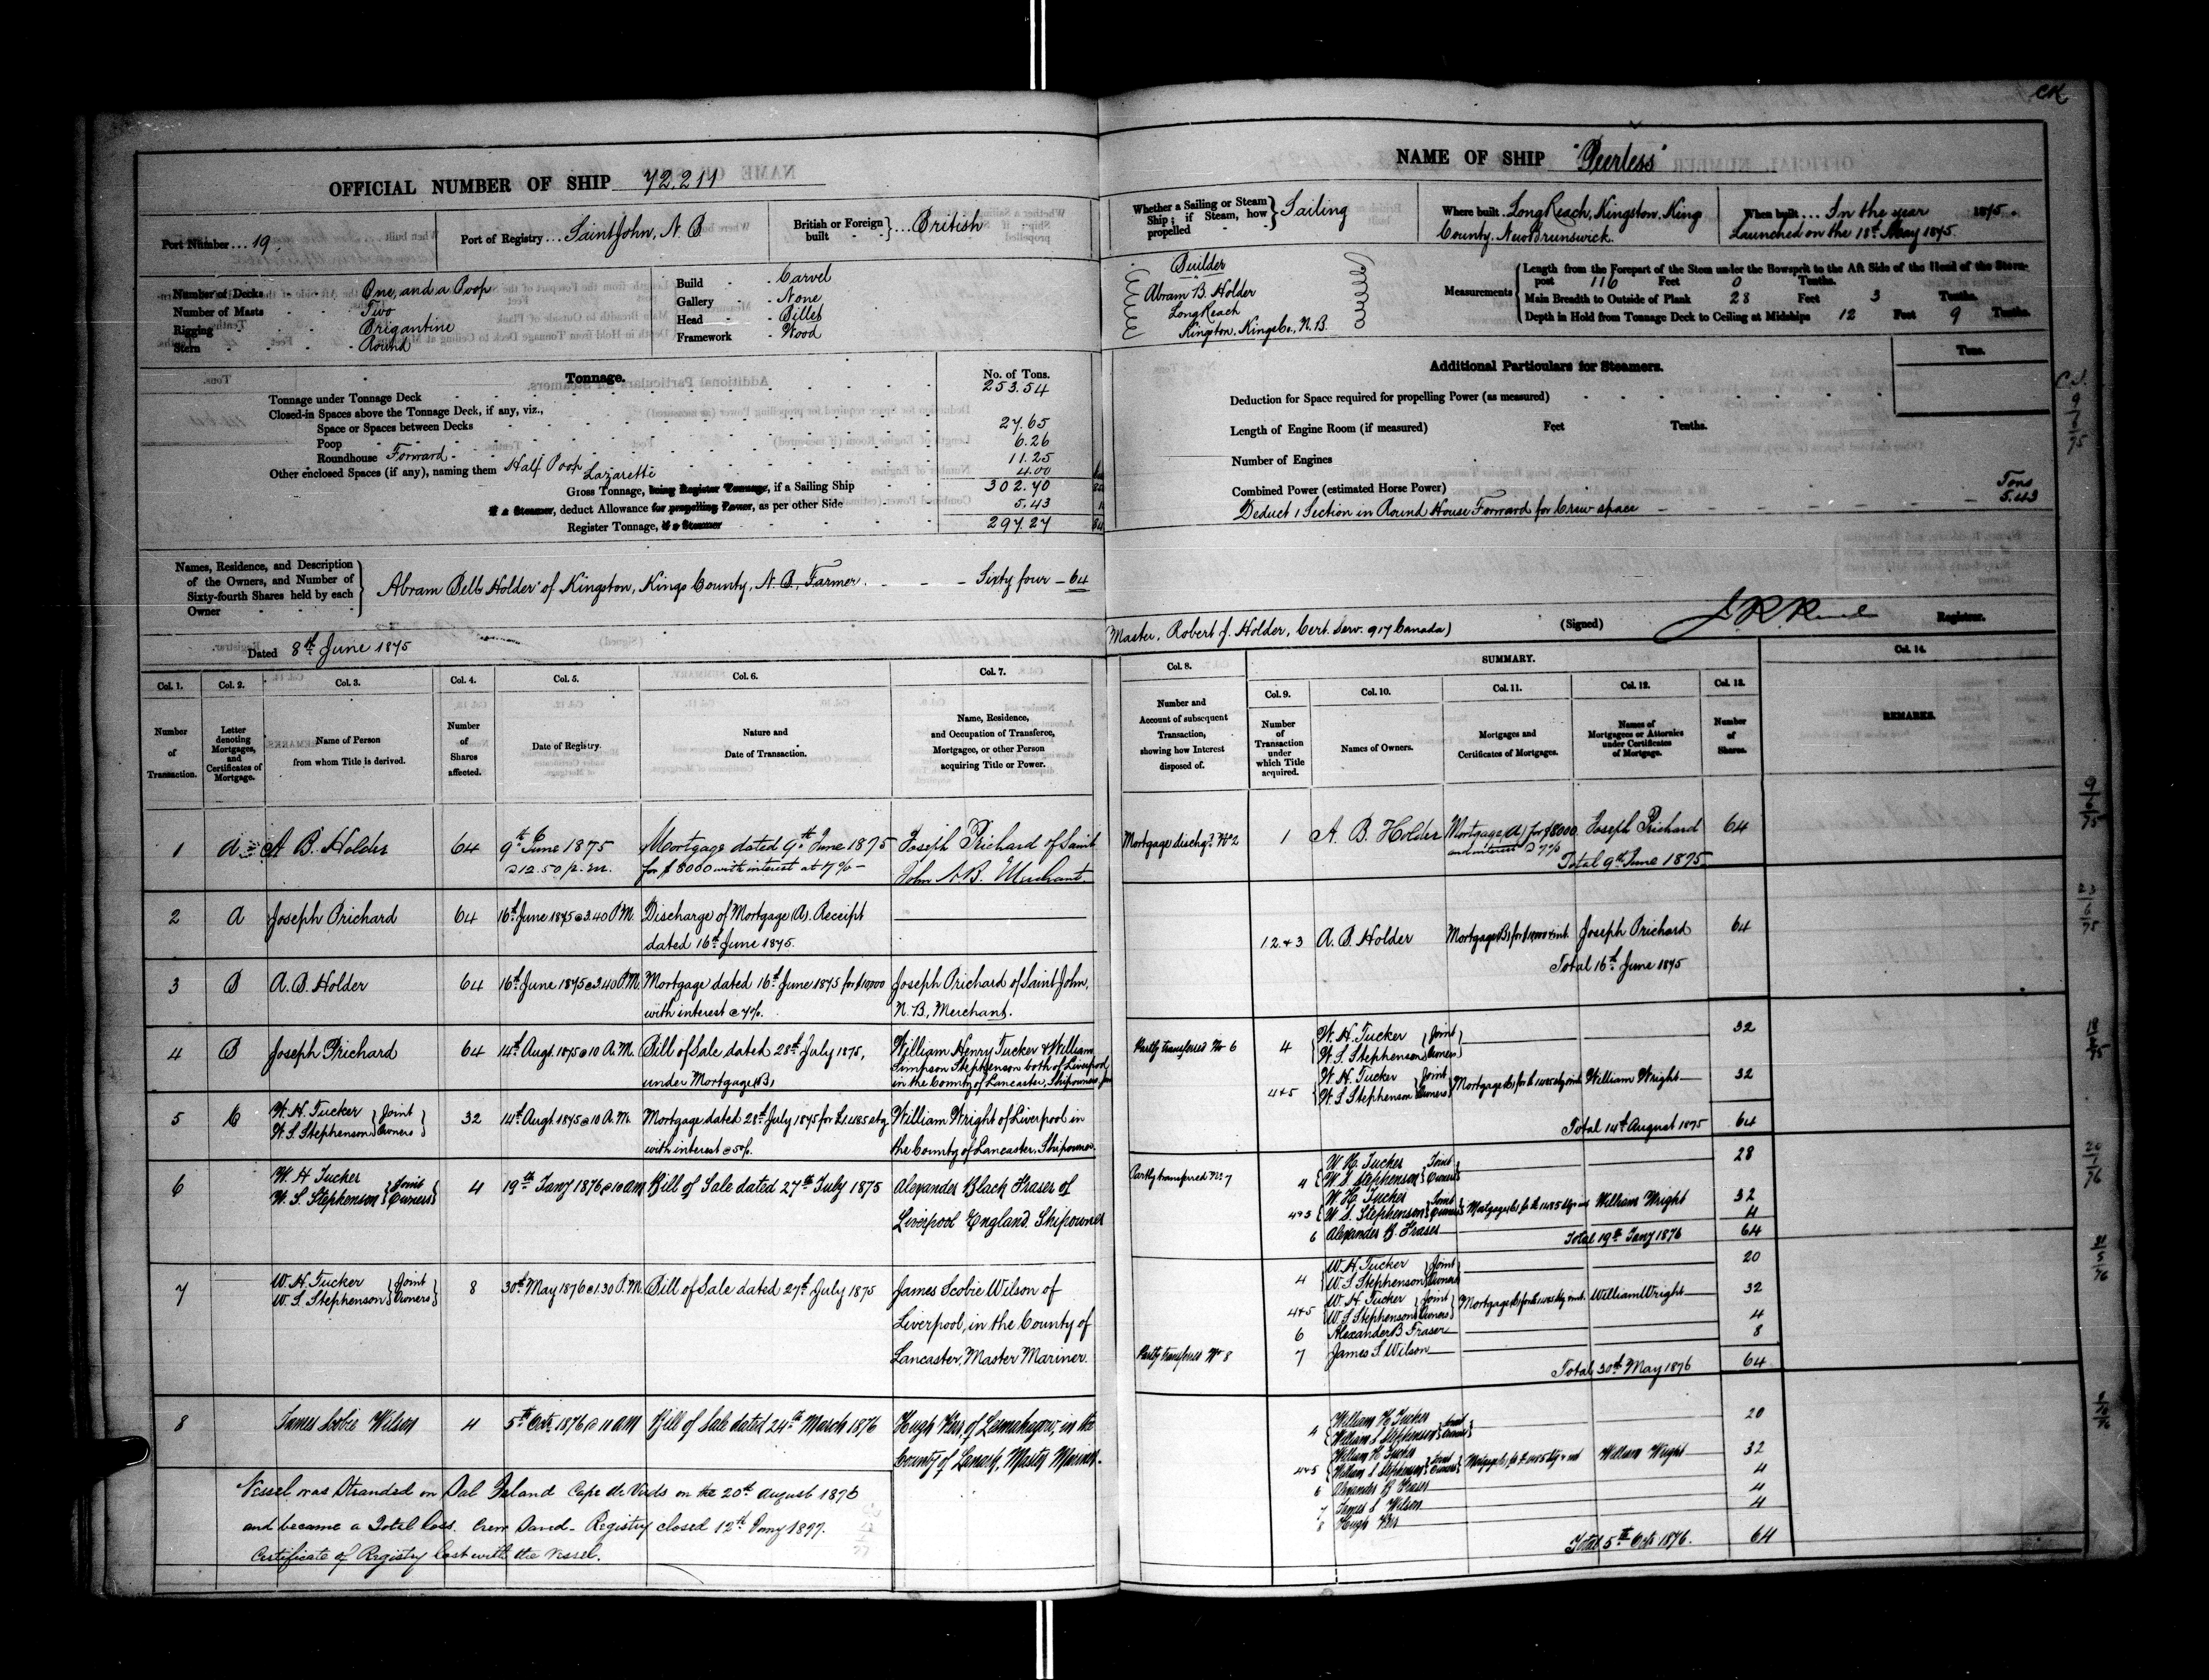 CK
OFFICIAL NUMBER OF SHIP 72.211
Port Number ... 19.
Port of Registry ... Saint John, N. B
British or Foreign built } ... British
Number of Decks - One, and a Poop
Number of Masts - Two
Rigging - Brigantine
Stern - Round
Build - Carvel
Gallery - None
Head - Billet
Framework - Wood
Tonnage.
No. of Tons.
Tonnage under Tonnage Deck 253.54
Closed-in Spaces above the Tonnage Deck, if any, viz.,
Space or Spaces between Decks 27.65
Poop 6.26
Roundhouse Forward 11.25
Other enclosed Spaces (if any), naming them Half Poop Lazarette 4.00
Gross Tonnage, being Register Tonnage, if a Sailing Ship 302.70
If a Steamer, deduct Allowance for propelling Power, as per other Side 5.43
Register Tonnage, if a Steamer 297.27
Names, Residence, and Description
of the Owners, and Number of
Sixty-fourth Shares held by each
Owner
Abram Bell Holder of Kingston, Kings County, N. B, Farmer - - - Sixty four - 64
Dated 8th June 1875
NAME OF SHIP "Peerless"
Whether a Sailing or Steam Ship; if Steam, how propelled } Sailing
Where built Long Reach, Kingston, Kings
County, New Brunswick.
When built ... In the year 1875.
Launched on the 18th May 1875
Builder
Abram B. Holder
Long Reach
Kingston, Kings Co., N. B.
Measurements
Length from the Forepart of the Stem under the Bowsprit to the Aft Side of the Head of the Stern-
post 116 Feet 0 Tenths.
Main Breadth to Outside of Plank 28 Feet 3 Tenths.
Depth in Hold from Tonnage Deck to Ceiling at Midships 12 Feet 9 Tenths.
Additional Particulars for Steamers.
Tons.
Deduction for Space required for propelling Power (as measured)
Length of Engine Room (if measured) Feet Tenths.
Number of Engines
Combined Power (estimated Horse Power)
Tons
Deduct 1 Section in Round House Forward for Crew space 5.43
Master, Robert J. Holder, Cert. Serv. 917 Canada)
(Signed) Registrar.
Col. 1. Col. 2. Col. 3. Col. 4. Col. 5. Col. 6. Col. 7.
Number of Transaction.
Letter denoting Mortgages, and Certificates of Mortgage.
Name of Person from whom Title is derived.
Number of Shares affected.
Date of Registry.
Nature and Date of Transaction.
Name, Residence, and Occupation of Transferee, Mortgagee, or other Person acquiring Title or Power.
1 A A B. Holder 64 9th June 1875 Mortgage dated 9th June 1875 Joseph Prichard of Saint
@ 12.50 p.m. for $8000 with interest at 7% - John N.B. Merchant.
2 A Joseph Prichard 64 16th June 1875 @ 3.40 P.M. Discharge of Mortgage (A). Receipt
dated 16th June 1875.
3 B A. B. Holder 64 16th June 1875 @ 3.40 P.M. Mortgage dated 16th June 1875 for $10,000 Joseph Prichard of Saint John,
with interest @ 7%. N. B, Merchant.
4 B Joseph Prichard 64 14th Augt. 1875 @ 10 A.M. Bill of Sale dated 28th July 1875, William Henry Tucker & William
under Mortgage (B) Simpson Stephenson both of Liverpool
in the County of Lancaster, Shipowners
5 C W. H. Tucker } Joint 32 14th Augt. 1875 @ 10 A.M. Mortgage dated 28th July 1875 for £1485 stg William Wright of Liverpool in
W. S. Stephenson } Owners with interest @ 5%. the County of Lancaster, Shipowner.
6 W. H Tucker } Joint 4 19th Jany 1876 @ 10 am Bill of Sale dated 27th July 1875 Alexander Black Fraser of
W. S. Stephenson } Owners Liverpool England. Shipowner
7 W. H. Tucker } Joint 8 30th May 1876 @ 1.30 P.M. Bill of Sale dated 27th July 1875 James Scobie Wilson of
W. S Stephenson } Owners Liverpool, in the County of
Lancaster, Master Mariner.
8 James Scobie Wilson 4 5th Octr. 1876 @ 11 am Bill of Sale dated 24th March 1876 Hugh Kerr, of Lesmahagow, in the
County of Lanark, Master Mariner.
Vessel was Stranded on Sal Island Cape de Verds on the 20th August 1876
and became a Total loss. Crew Saved - Registry closed 12th Jany 1877.
Certificate of Registry lost with the Vessel.
Col. 8. SUMMARY. Col. 14.
Col. 9. Col. 10. Col. 11. Col. 12. Col. 13.
Number and Account of subsequent Transaction, showing how Interest disposed of.
Number of Transaction under which Title acquired.
Names of Owners.
Mortgages and Certificates of Mortgages.
Names of Mortgagees or Attornies under Certificates of Mortgage.
Number of Shares.
REMARKS.
Mortgage dischgd. No 2 1 A. B. Holder Mortgage (A) for $8000 Joseph Prichard 64
and interest @ 7%
Total 9th June 1875
1 2 & 3 A. B. Holder Mortgage (B) for $10,000 & int. Joseph Prichard 64
Total 16th June 1875
Partly transferred No 6 4 { W. H. Tucker } Joint 32
W. S. Stephenson } Owners
4 & 5 { W. H. Tucker } Joint Mortgage (C) for £1485 stg & int. William Wright 32
W. S. Stephenson } Owners
Total 14th August 1875 64
Partly transferred No. 7 4 { W H. Tucker } Joint 28
W S Stephenson } Owners
4 & 5 { W H. Tucker } Joint Mortgage (C) for £1485 stg & int William Wright 32
W. S. Stephenson } Owners
6 Alexander B. Fraser 4
Total 19th Jany 1876 64
4 { W. H. Tucker } Joint 20
W. S. Stephenson } Owners
4 & 5 { W. H. Tucker } Joint Mortgage (C) for £1485 stg & int. William Wright 32
W. S. Stephenson } Owners
6 Alexander B. Fraser 4
Partly transferred No 8 7 James S. Wilson 8
Total 30th May 1876 64
4 { William H Tucker } Joint 20
William S Stephenson } Owners
4 & 5 { William H. Tucker } Joint Mortgage (C) for £1485 stg & int William Wright 32
William S Stephenson } Owners
6 Alexander B Fraser 4
7 James S Wilson 4
8 Hugh Kerr 4
Total 5th Octr 1876. 64